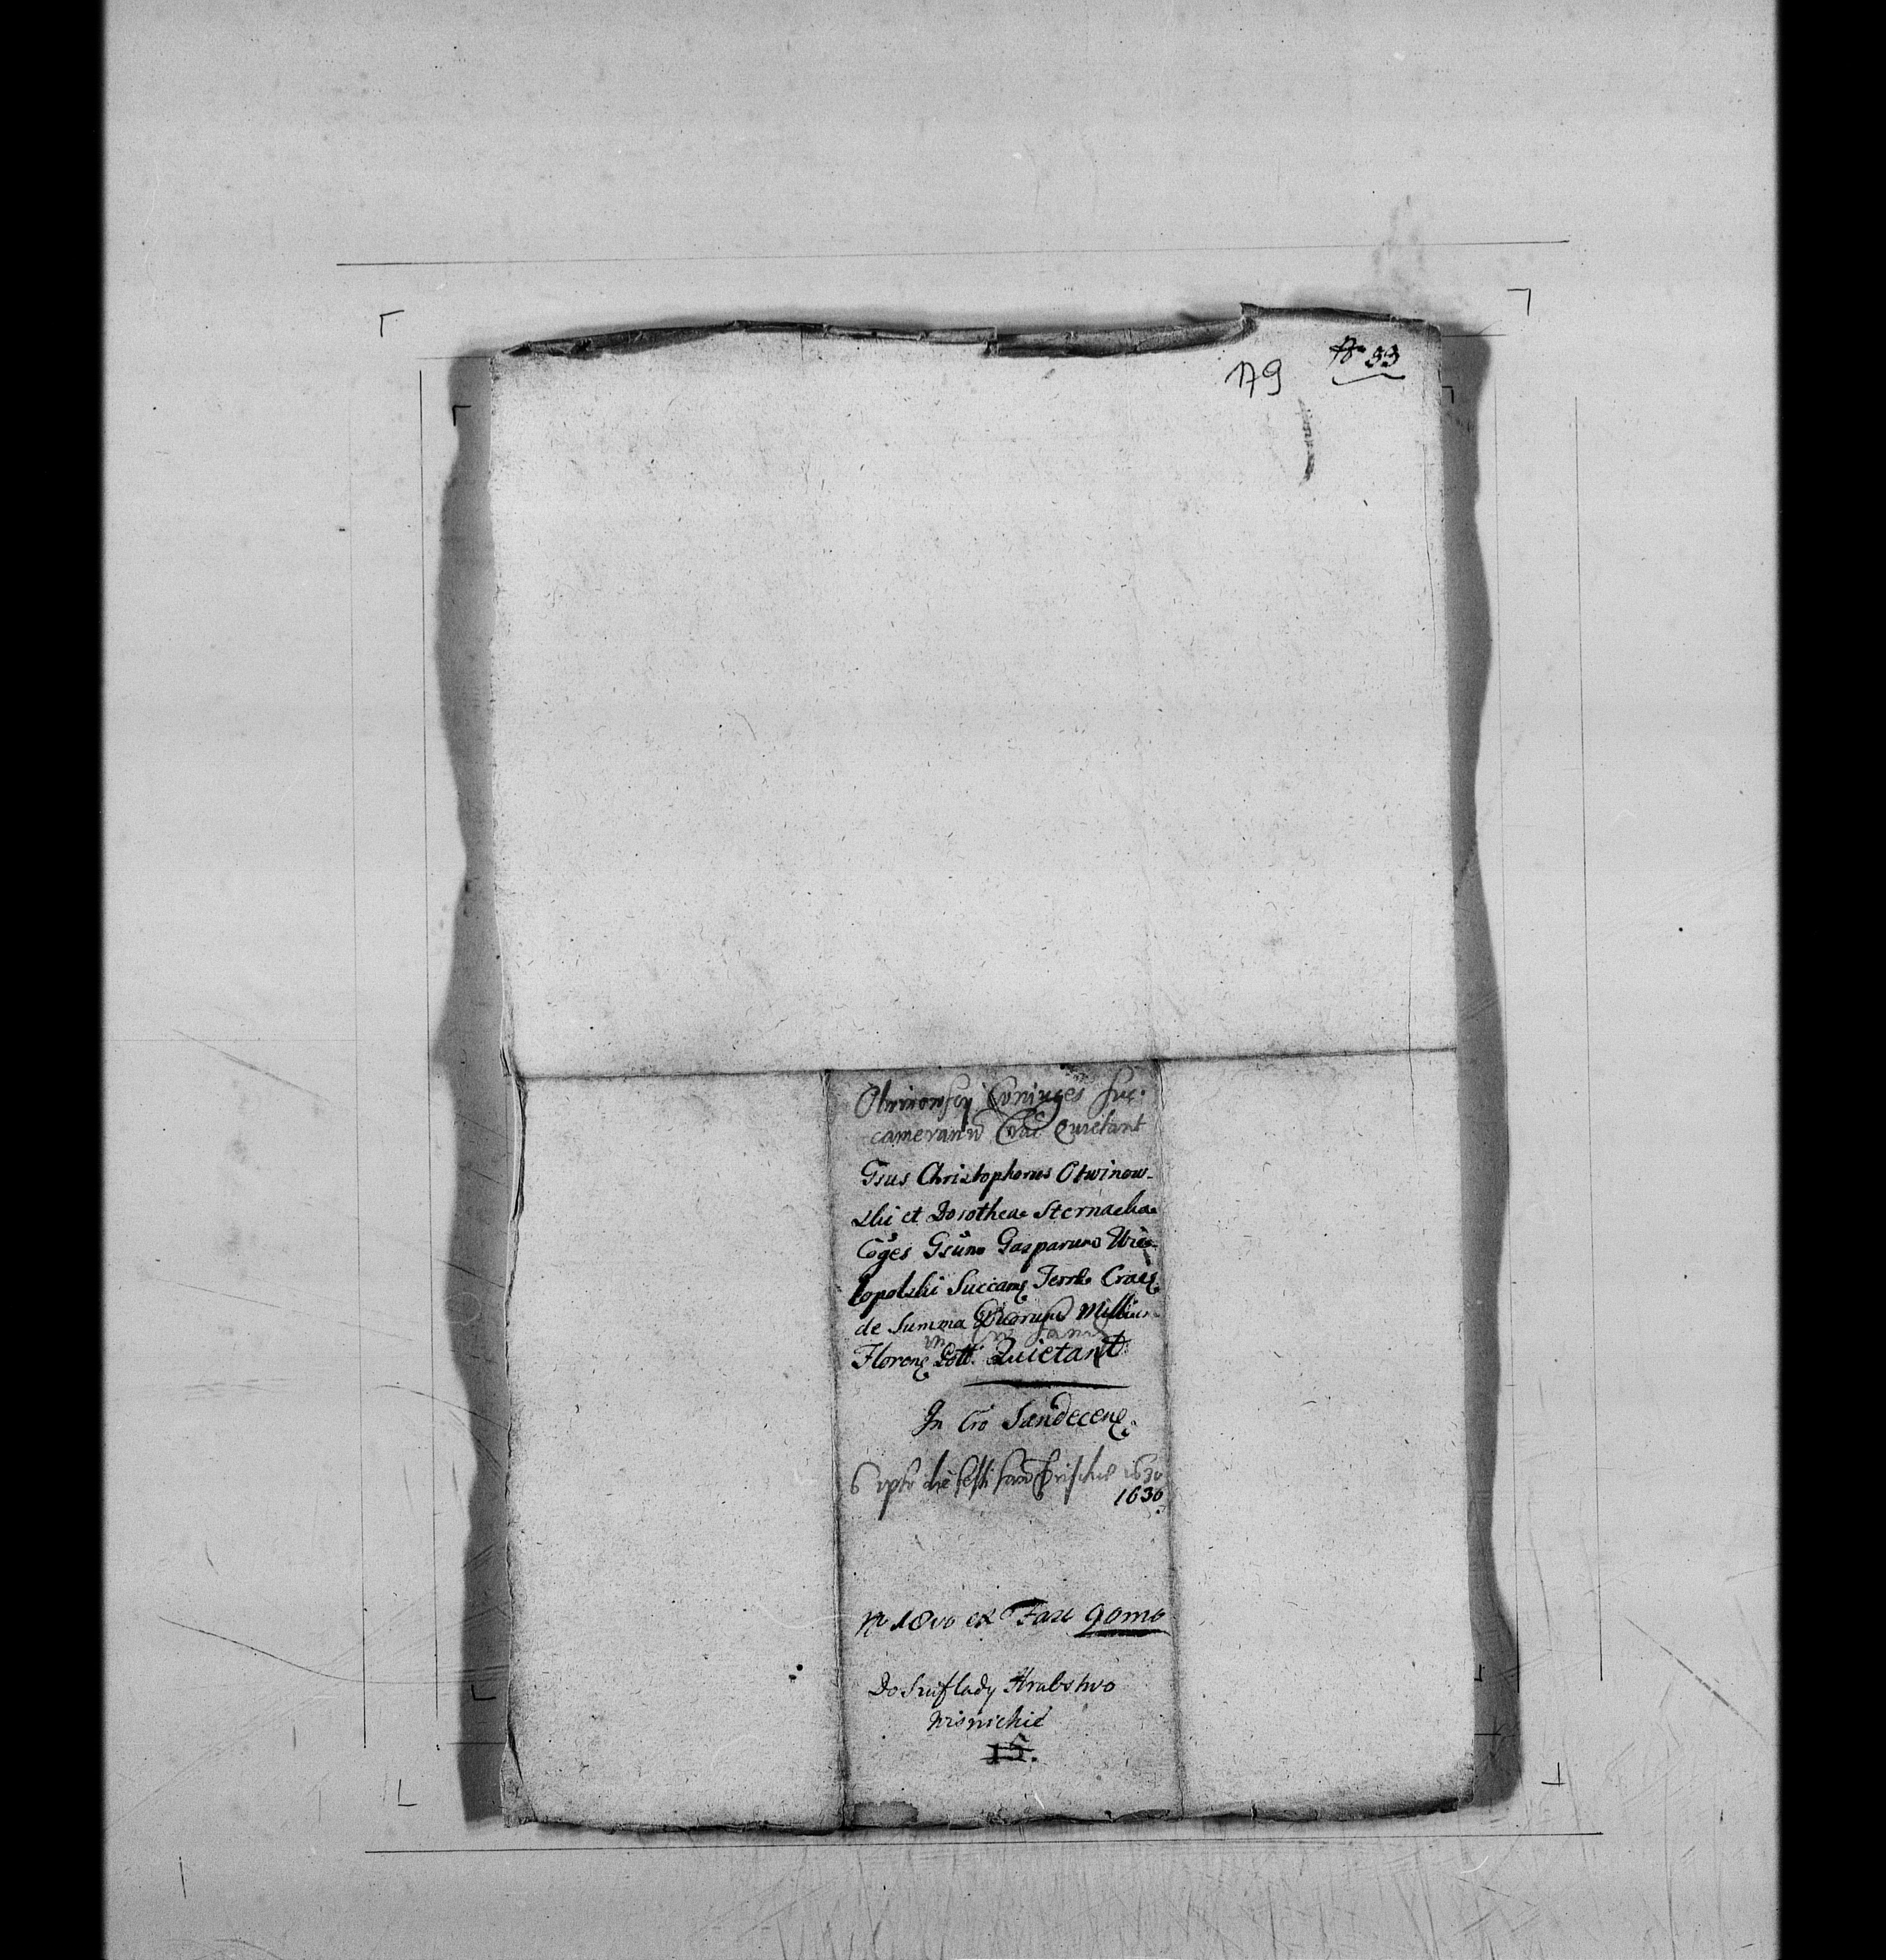 179 N° 33
Otwinowscy Coniuges Suc:
camerariũ Crac Quietant
Gsus Christophorus Otwinow-
ski et Dorothea Sternacka
Cōges Gsūm Gasparum Wie-
lopolski Succam Terrae Crac
de Summa Millium
Floren Poll: Quietant
In Cro Sandecen:
6 die festi 1630
1630
N° 18vo ex Fasc 90mo
Do Szuflady Hrabstwo
Wisnickie
15.